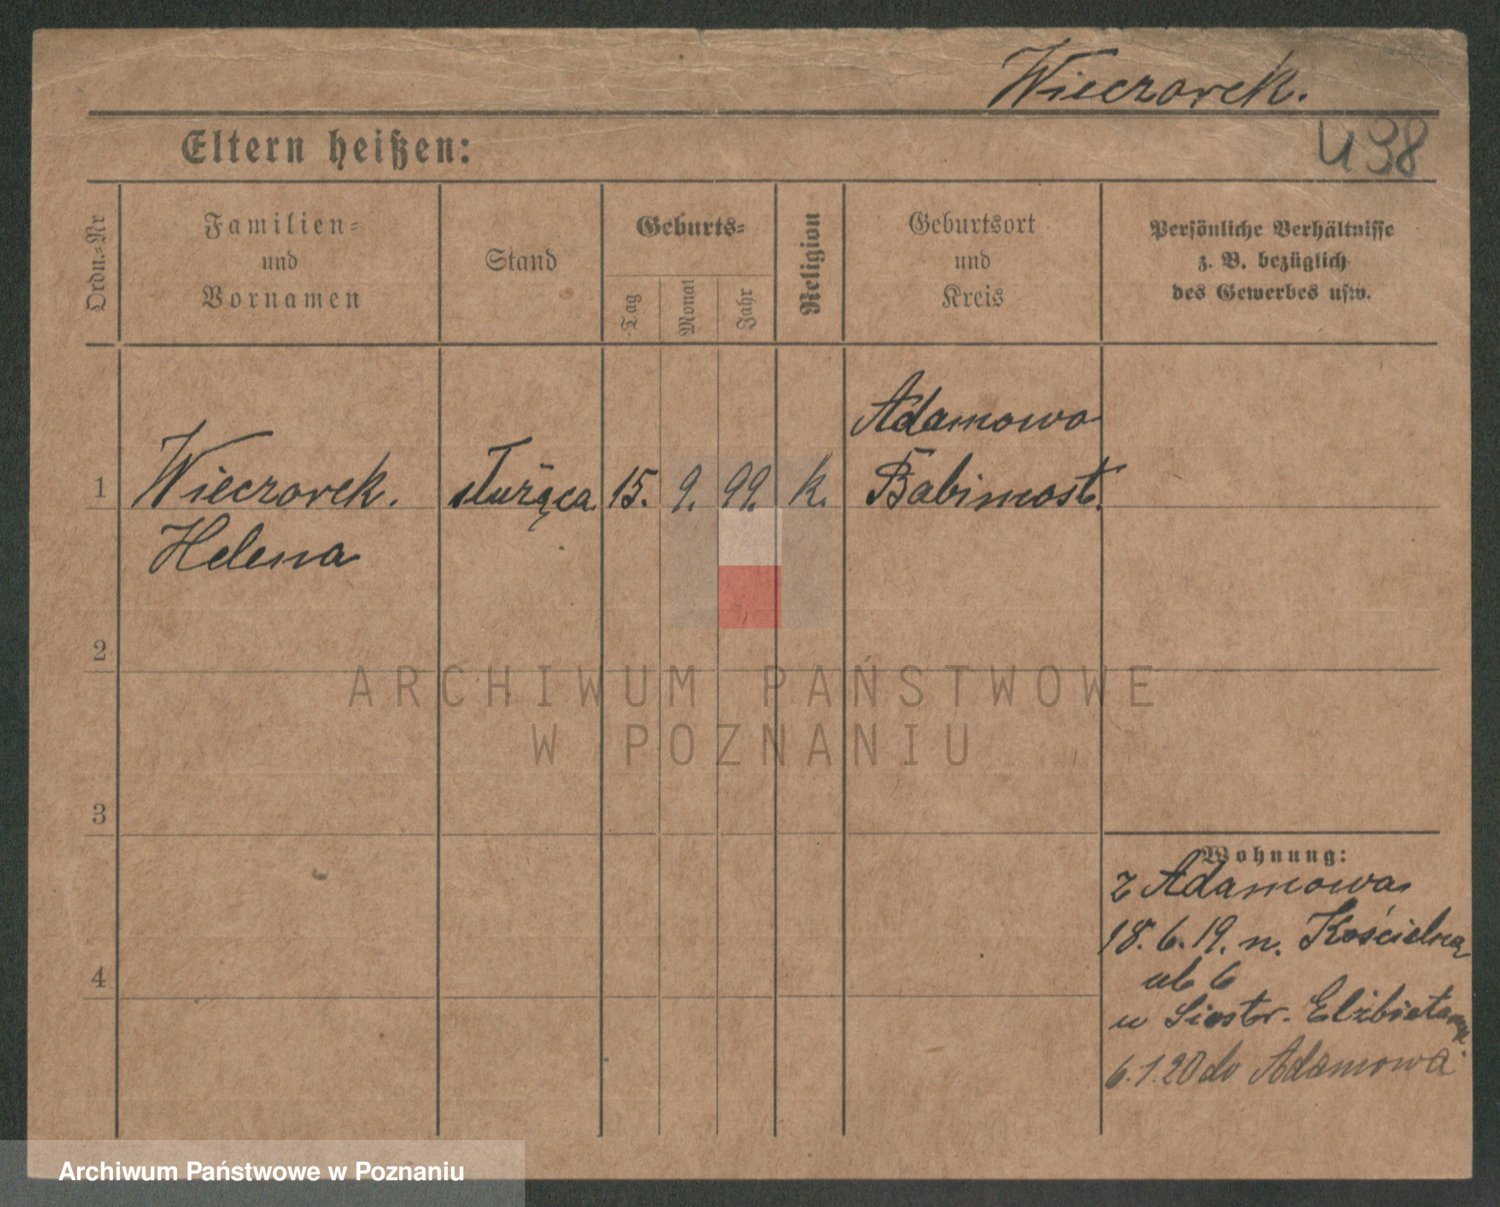 Wieczorek.
Eltern heißen:
438
Ordn.-Nr
Familien-
und
Vornamen
Stand
Geburts-
Tag
Monat
Jahr
Religion
Geburtsort
und
Kreis
Persönliche Verhältnisse
z. B. bezüglich
des Gewerbes usw.
1
Wieczorek.
Helena
służąca
15.
9.
99.
k.
Adamowo
Babimost.
2
3
4
Wohnung:
z Adamowa
18.6.19. n. Kościelna
ul 6
u Siostr. Elżbietanek.
6.1.20 do Adamowa
ARCHIWUM PAŃSTWOWE
W POZNANIU
Archiwum Państwowe w Poznaniu